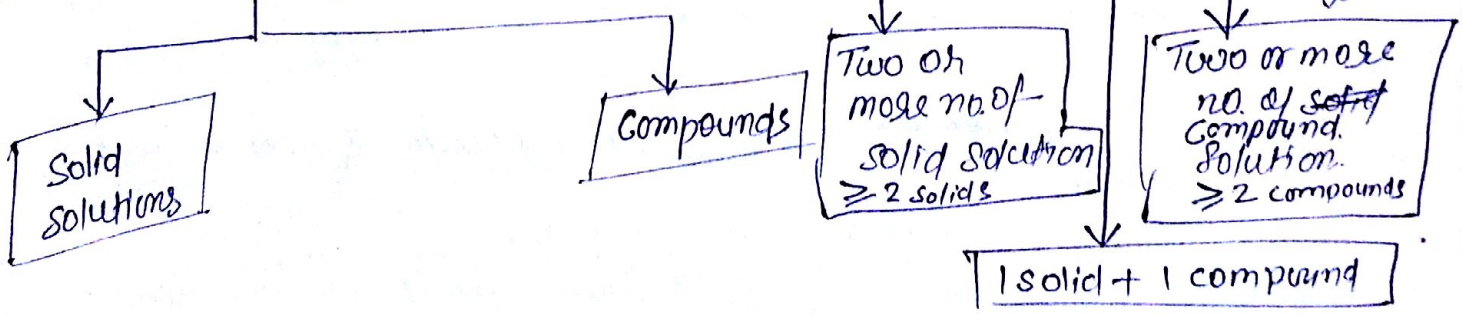 Solid
Solutions
Compounds
Two or
more no. of
solid solution
≥ 2 solids
Two or more
no. of solid
compound.
Solution.
≥ 2 compounds
1 solid + 1 compound